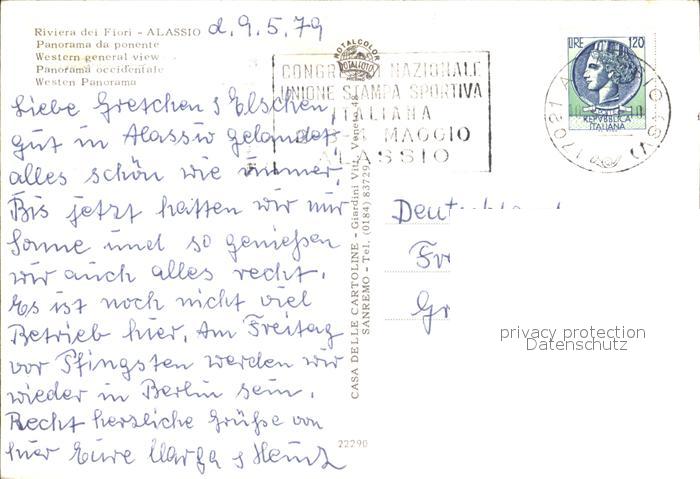 Riviera dei Fiori - ALASSIO d. 9.5.79
Panorama da ponente
Western general view
Panorama occidentale
Westen Panorama
Liebe Gretchen s Elschen,
gut in Alassio gelandet
alles schön wie immer.
Bis jetzt hatten wir nur
Sonne und so genießen
wir auch alles recht.
Es ist noch nicht viel
Betrieb hier. Am Freitag
vor Pfingsten werden wir
wieder in Berlin sein.
Recht herzliche Grüße von
hier Eure Marga s Heinz
ROTALCOLOR
ROTALFOTO
CONGRESSO NAZIONALE
UNIONE STAMPA SPORTIVA
ITALIANA
MAGGIO
ALASSIO
LIRE 120
REPVBBLICA
ITALIANA
CASA DELLE CARTOLINE - Giardini Vitt. Veneto, 48
SANREMO - Tel. (0184) 83729
22290
Deutschland
Fr
Gr
privacy protection
Datenschutz